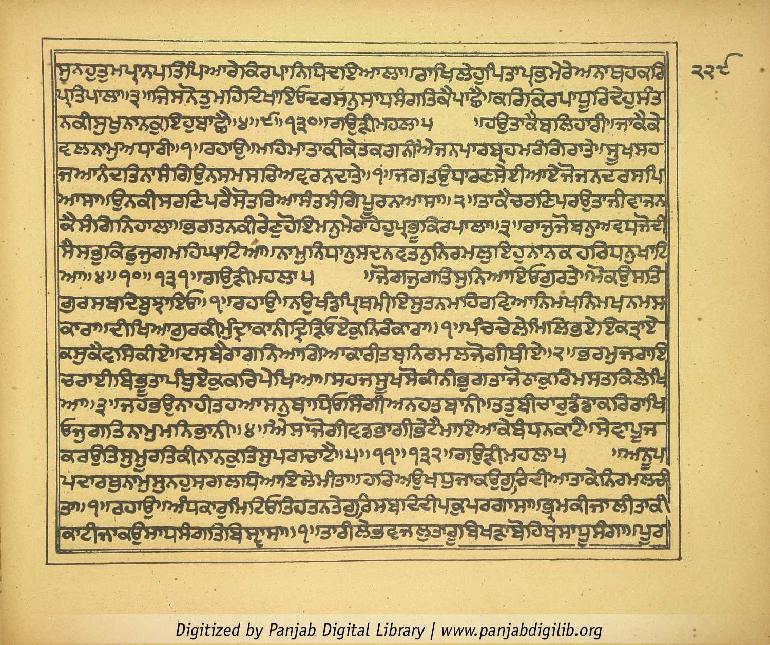 ਸੁਨਹੁਤੁਮਪ੍ਰਾਨਪਤਿਪਿਆਰੇਕਿਰਪਾਨਿਧਿਦਇਆਲਾ॥ਰਾਖਿਲੇਹੁਪਿਤਾਪ੍ਰਭਮੇਰੇਅਨਾਥਹਕਰਿ ੨੨੯
ਪ੍ਰਤਿਪਾਲਾ॥੩॥ਜਿਸਨੋਤੁਮਹਿਦਿਖਾਇਓਦਰਸਨੁਸਾਧਸੰਗਤਿਕੈਪਾਛੈ॥ਕਰਿਕਿਰਪਾਧੂਰਿਦੇਹੁਸੰਤ
ਨਕੀਸੁਖੁਨਾਨਕੁਇਹੁਬਾਛੈ॥੪॥੯॥੧੩੦॥ਗਉੜੀਮਹਲਾ੫ ॥ਹਉਤਾਕੈਬਲਿਹਾਰੀ॥ਜਾਕੈਕੇ
ਵਲਨਾਮੁਅਧਾਰੀ॥੧॥ਰਹਾਉ॥ਮਹਿਮਾਤਾਕੀਕੇਤਕਗਨੀਐਜਨਪਾਰਬ੍ਰਹਮਰੰਗਿਰਾਤੇ॥ਸੂਖਸਹ
ਜਆਨੰਦਤਿਨਾਸੰਗਿਉਨਸਮਸਰਿਅਵਰਨਦਾਤੇ॥੧॥ਜਗਤਉਧਾਰਣਸੇਈਆਏਜੋਜਨਦਰਸਪਿ
ਆਸਾ॥ਉਨਕੀਸਰਣਿਪਰੈਸੋਤਰਿਆਸੰਤਸੰਗਿਪੂਰਨਆਸਾ॥੨॥ਤਾਕੈਚਰਣਿਪਰਉਤਾਜੀਵਾਜਨ
ਕੈਸੰਗਿਨਿਹਾਲਾ॥ਭਗਤਨਕੀਰੇਣੁਹੋਇਮਨੁਮੇਰਾਹੋਹੁਪ੍ਰਭੂਕਿਰਪਾਲਾ॥੩॥ਰਾਜੁਜੋਬਨੁਅਵਧਜੋਦੀ
ਸੈਸਭੁਕਿਛੁਜੁਗਮਹਿਘਾਟਿਆ॥ਨਾਮੁਨਿਧਾਨੁਸਦਨਵਤਨੁਨਿਰਮਲੁਇਹੁਨਾਨਕਹਰਿਧਨੁਖਾਟਿ
ਆ॥੪॥੧੦॥੧੩੧॥ਗਉੜੀਮਹਲਾ੫ ॥ਜੋਗਜੁਗਤਿਸੁਨਿਆਇਓਗੁਰਤੇ॥ਮੋਕਉਸਤਿ
ਗੁਰਸਬਦਿਬੁਝਾਇਓ॥੧॥ਰਹਾਉ॥ਨਉਖੰਡਪ੍ਰਿਥਮੀਇਸੁਤਨਮਹਿਰਵਿਆਨਿਮਖਨਿਮਖਨਮਸ
ਕਾਰਾ॥ਦੀਖਿਆਗੁਰਕੀਮੁੰਦ੍ਰਾਕਾਨੀਦ੍ਰਿੜਿਓਏਕੁਨਿਰੰਕਾਰਾ॥੧॥ਪੰਚਚੇਲੇਮਿਲਿਭਏਇਕਤ੍ਰਾਏ
ਕਸੁਕੈਵਸਿਕੀਏ॥ਦਸਬੈਰਾਗਨਿਆਗਿਆਕਾਰੀਤਬਨਿਰਮਲਜੋਗੀਥੀਏ॥੨॥ਭਰਮੁਜਰਾਇ
ਚਰਾਈਬਿਭੂਤਾਪੰਥੁਏਕੁਕਰਿਪੇਖਿਆ॥ਸਹਜਸੂਖਸੋਕੀਨੀਭੁਗਤਾਜੋਠਾਕੁਰਿਮਸਤਕਿਲੇਖਿ
ਆ॥੩॥ਜਹਭਉਨਾਹੀਤਹਾਆਸਨੁਬਾਧਿਓਸਿੰਗੀਅਨਹਤਬਾਨੀ॥ਤਤੁਬੀਚਾਰੁਡੰਡਾਕਰਿਰਾਖਿ
ਓਜੁਗਤਿਨਾਮੁਮਨਿਭਾਨੀ॥੪॥ਐਸਾਜੋਗੀਵਡਭਾਗੀਭੇਟੈਮਾਇਆਕੇਬੰਧਨਕਾਟੈ॥ਸੇਵਾਪੂਜ
ਕਰਉਤਿਸੁਮੂਰਤਿਕੀਨਾਨਕੁਤਿਸੁਪਗਚਾਟੈ॥੫॥੧੧॥੧੩੨॥ਗਉੜੀਮਹਲਾ੫ ॥ਅਨੂਪ
ਪਦਾਰਥੁਨਾਮੁਸੁਨਹੁਸਗਲਧਿਆਇਲੇਮੀਤਾ॥ਹਰਿਅਉਖਧੁਜਾਕਉਗੁਰਿਦੀਆਤਾਕੇਨਿਰਮਲਚੀ
ਤਾ॥੧॥ਰਹਾਉ॥ਅੰਧਕਾਰੁਮਿਟਿਓਤਿਹਤਨਤੇਗੁਰਿਸਬਦਿਦੀਪਕੁਪਰਗਾਸਾ॥ਭ੍ਰਮਕੀਜਾਲੀਤਾਕੀ
ਕਾਟੀਜਾਕਉਸਾਧਸੰਗਤਿਬਿਸ੍ਵਾਸਾ॥੧॥ਤਾਰੀਲੇਭਵਜਲੁਤਾਰੂਬਿਖੜਾਬੋਹਿਥਸਾਧੂਸੰਗਾ॥ਪੂਰ
Digitized by Panjab Digital Library | www.panjabdigilib.org